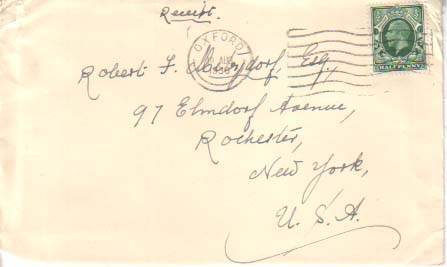 Receipt.
OXFORD
1936
HALFPENNY
Robert F. Metzdorf, Esq.,
97 Elmdorf Avenue,
Rochester,
New York,
U. S. A.